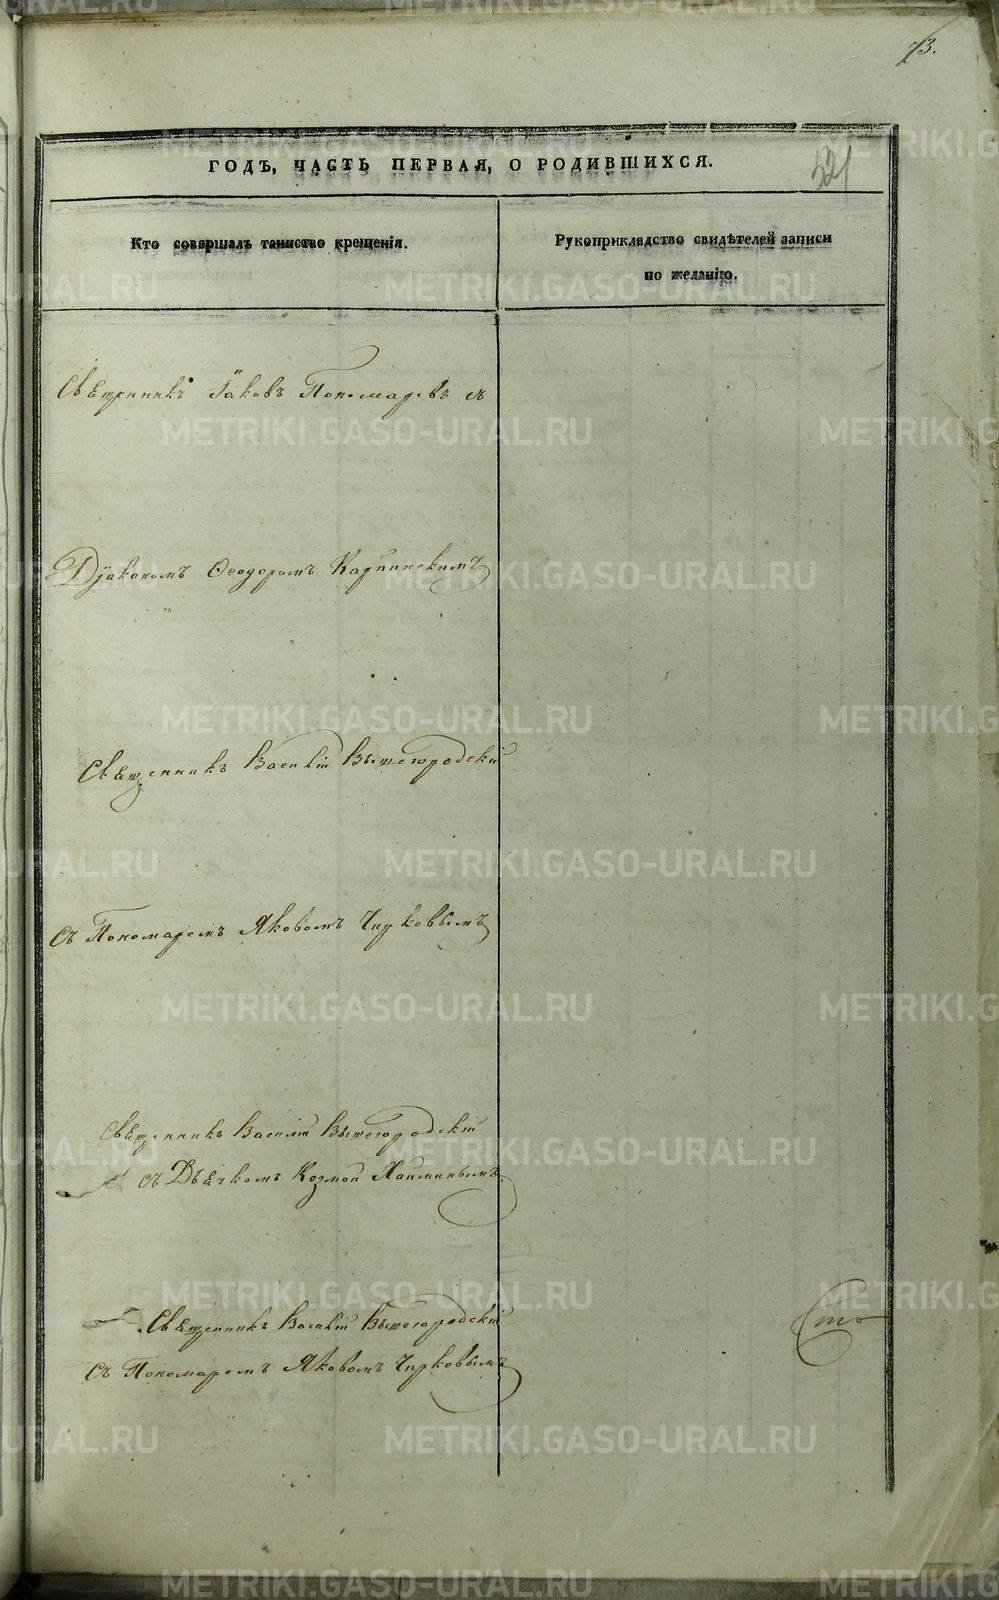 73.
ГОДЪ, ЧАСТЬ ПЕРВАЯ, О РОДИВШИХСЯ.
521
Кто совершалъ таинство крещенія.
Рукоприкладство свидѣтелей записи
по желанію.
Священникъ Іаковъ Пономаревъ съ
Діакономъ Ѳеодоромъ Карпинскимъ
Священникъ Василій Вышегородскій
Съ Пономаремъ Яковомъ Чирковымъ
Священникъ Василій Вышегородскій
съ Дьячкомъ Козмой
Священникъ Василій Вышегородскій
Съ Пономаремъ Яковомъ Чирковымъ
METRIKI.GASO-URAL.RU